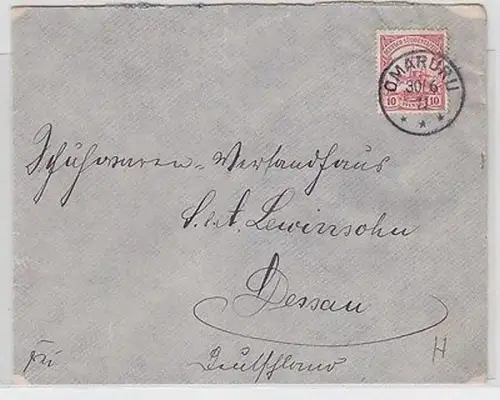 OMARURU
30/6
11
10 10
Schuhwaren-Versandhaus
S. & A. Lewinsohn
Dessau
Deutschland
H